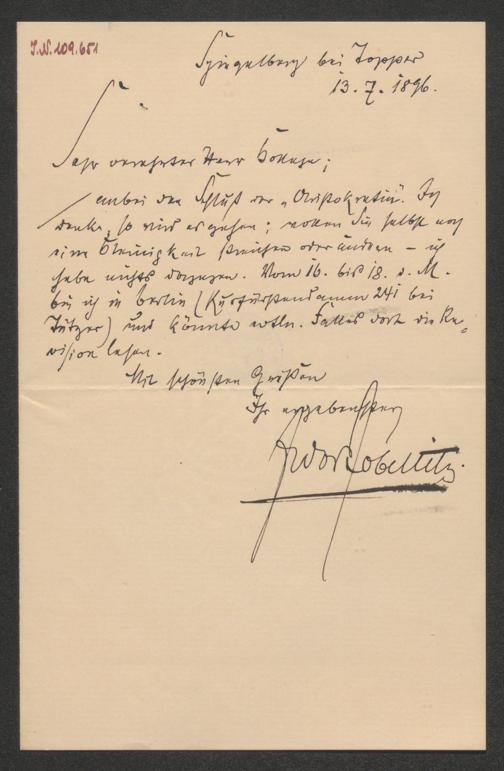 J.N. 109.651
Spiegelberg bei Topper
13.7.1896.
Sehr verehrter Herr College;
anbei der Schluß der „Aristokratin“. Ich
denke, so wird es gehen; wollen Sie selbst noch
eine Kleinigkeit streichen oder ändern – ich
habe nichts dagegen. Vom 16. bis 18. d. M.
bin ich in Berlin (Kurfürstendamm 241 bei
) und könnte evtln. Falles dort die Re-
vision lesen.
Mit schönsten Grüßen
Ihr ergebenster
Zobeltitz.